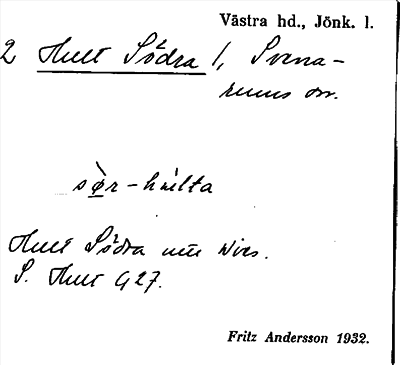 Västra hd., Jönk. l.
2 Hult Södra 1, Svena-
rums sn.
sør-hulta
Hult Södra
S. Hult G 27.
Fritz Andersson 1932.